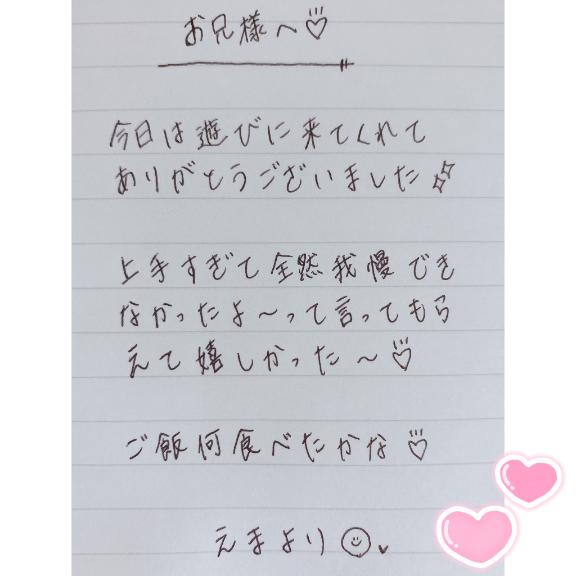 お兄様へ♡
今日は遊びに来てくれて
ありがとうございました✨
上手すぎて全然我慢でき
なかったよ〜って言ってもら
えて嬉しかった〜♡
ご飯何食べたかな♡
えまより☺♥